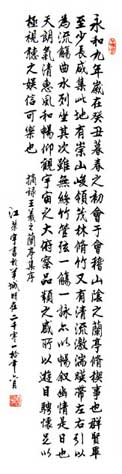 永和九年歲在癸丑暮春之初會于會稽山陰之蘭亭脩禊事也群賢畢
至少長咸集此地有崇山峻領茂林脩竹又有清流激湍暎帶左右引以
為流觴曲水列坐其次雖無絲竹管弦之盛一觴一詠亦足以暢叙幽情是日也
天朗氣清惠風和暢仰觀宇宙之大俯察品類之盛所以遊目騁懷足以
極視聽之娛信可樂也
摘錄王羲之蘭亭集序
江榮 書於羊城时在二千零一拾年八月